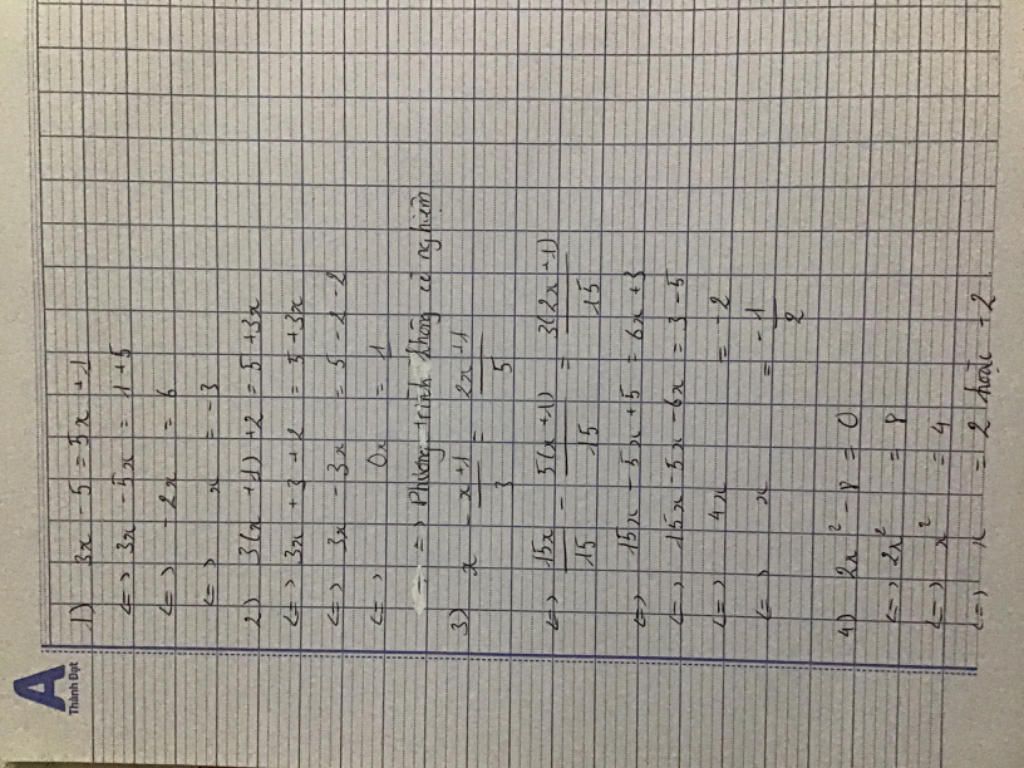 A
Thành Đạt
1) 3x - 5 = 5x + 1
<=> 3x - 5x = 1 + 5
<=> - 2x = 6
<=> x = - 3
2) 3(x + 1) + 2 = 5 + 3x
<=> 3x + 3 + 2 = 5 + 3x
<=> 3x - 3x = 5 - 2 - 2
<=> 0x = 1
=> Phương trình không có nghiệm
3) x - \frac{x+1}{3} = \frac{2x+1}{5}
<=> \frac{15x}{15} - \frac{5(x+1)}{15} = \frac{3(2x+1)}{15}
<=> 15x - 5x + 5 = 6x + 3
<=> 15x - 5x - 6x = 3 - 5
<=> 4x = - 2
<=> x = - \frac{1}{2}
4) 2x² - 8 = 0
<=> 2x² = 8
<=> x² = 4
<=> x = 2 hoặc - 2